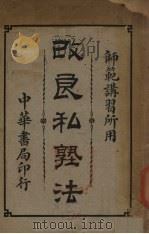 師範講習所用
改良私塾法
中華書局印行
mtoou.info mtoou.info